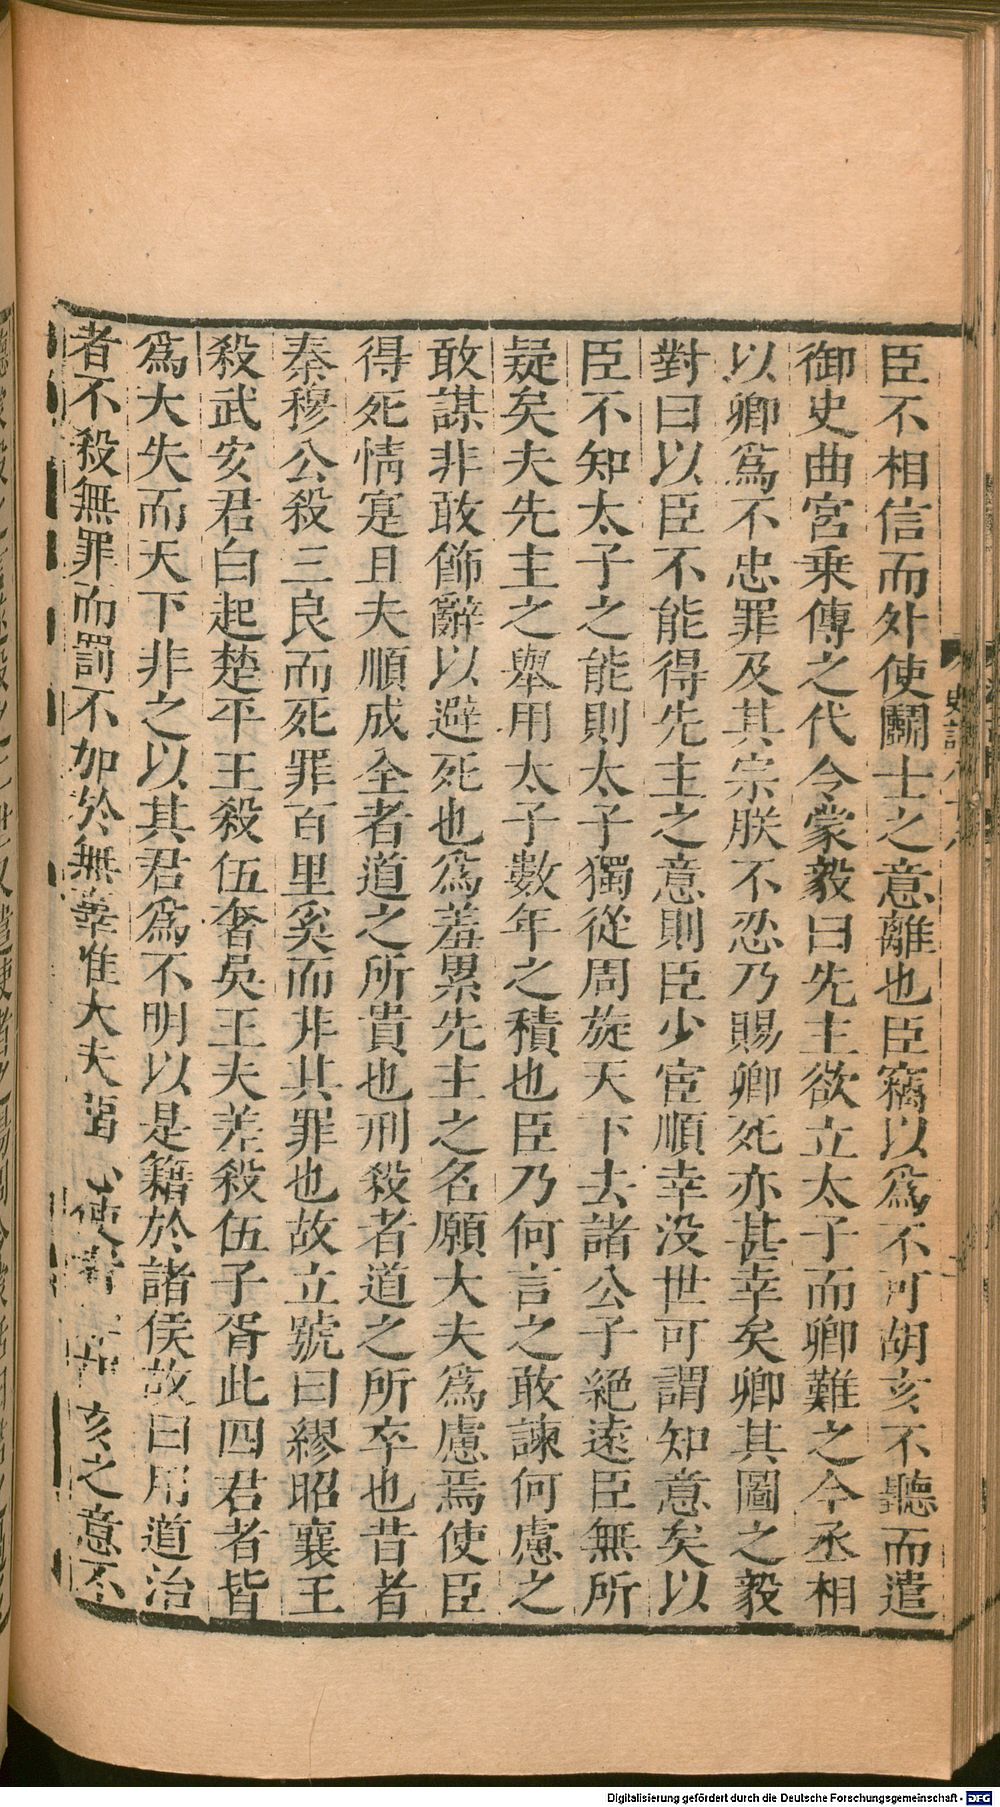 臣不相信而外使鬭士之意離也臣竊以爲不可胡亥不聽而遣
御史曲宮乘傳之代令蒙毅曰先主欲立太子而卿難之今丞相
以卿爲不忠罪及其宗朕不忍乃賜卿死亦甚幸矣卿其圖之毅
對曰以臣不能得先主之意則臣少宦順幸没世可謂知意矣以
臣不知太子之能則太子獨從周旋天下去諸公子絕遠臣無所
疑矣夫先主之舉用太子數年之積也臣乃何言之敢諫何慮之
敢謀非敢飾辭以避死也爲羞累先主之名願大夫爲慮焉使臣
得死情寔且夫順成全者道之所貴也刑殺者道之所卒也昔者
秦穆公殺三良而死罪百里奚而非其罪也故立號曰繆昭襄王
殺武安君白起楚平王殺伍奢吳王夫差殺伍子胥此四君者皆
爲大失而天下非之以其君爲不明以是籍於諸侯故曰用道治
者不殺無罪而罰不加於無辜惟大夫留心使者亥之意不
史記八十八
Digitalisierung gefördert durch die Deutsche Forschungsgemeinschaft - DFG